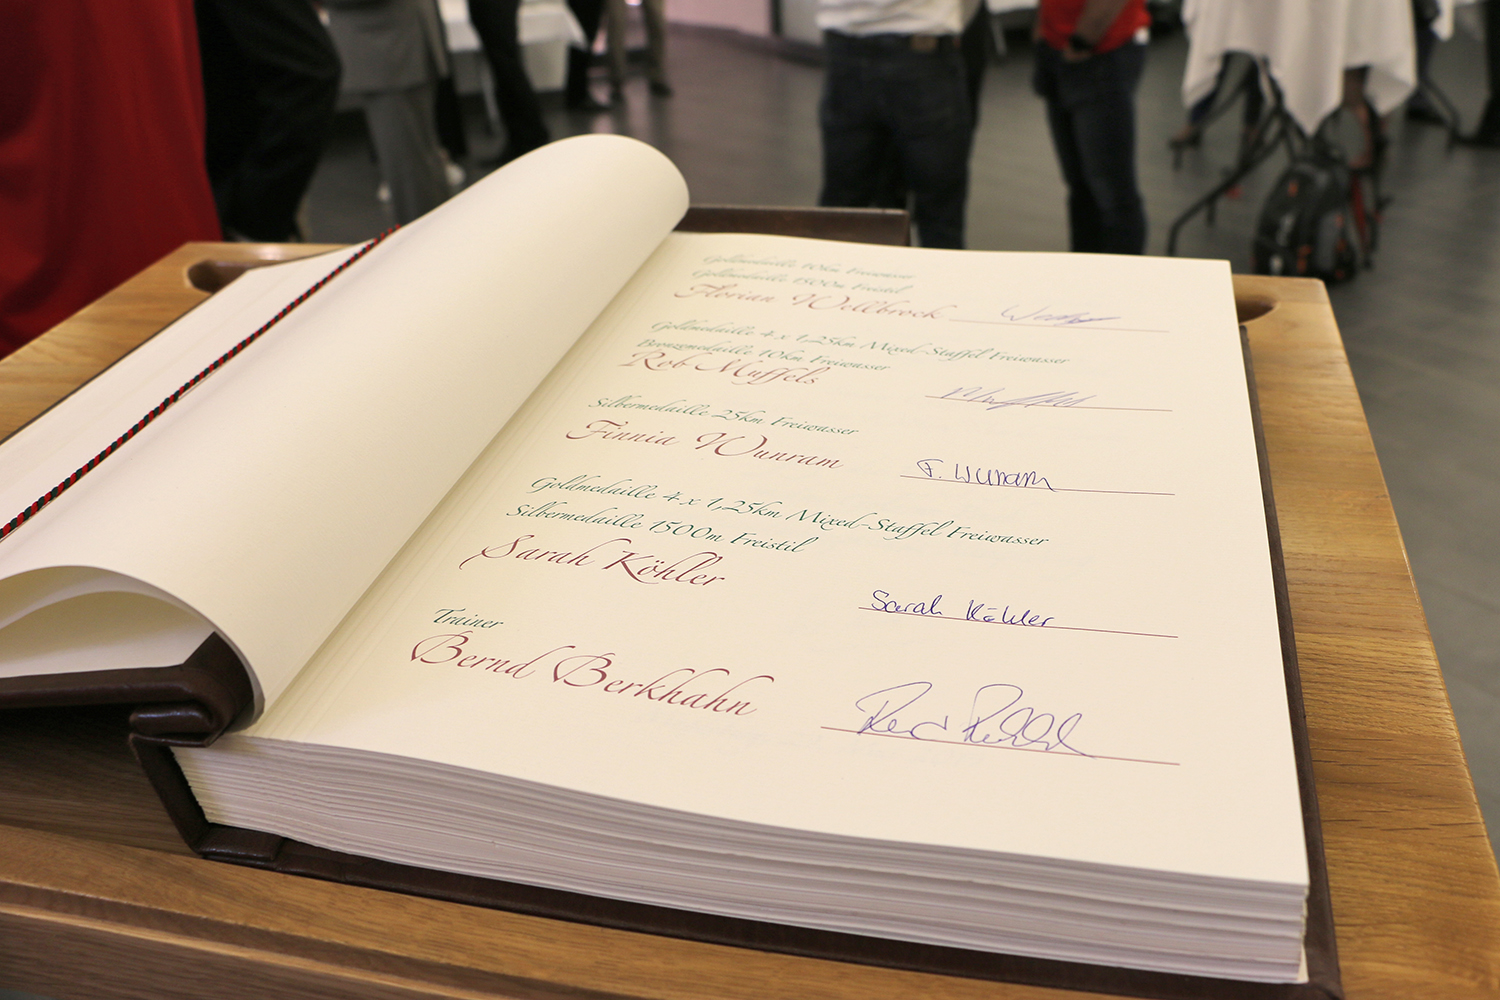 Goldmedaille 10km Freiwasser
Goldmedaille 1500m Freistil
Florian Wellbrock
Goldmedaille 4 x 1,25km Mixed-Staffel Freiwasser
Bronzemedaille 10km Freiwasser
Rob Muffels
Silbermedaille 25km Freiwasser
Finnia Wunram F. Wunram
Goldmedaille 4 x 1,25km Mixed-Staffel Freiwasser
Silbermedaille 1500m Freistil
Sarah Köhler Sarah Köhler
Trainer
Bernd Berkhahn